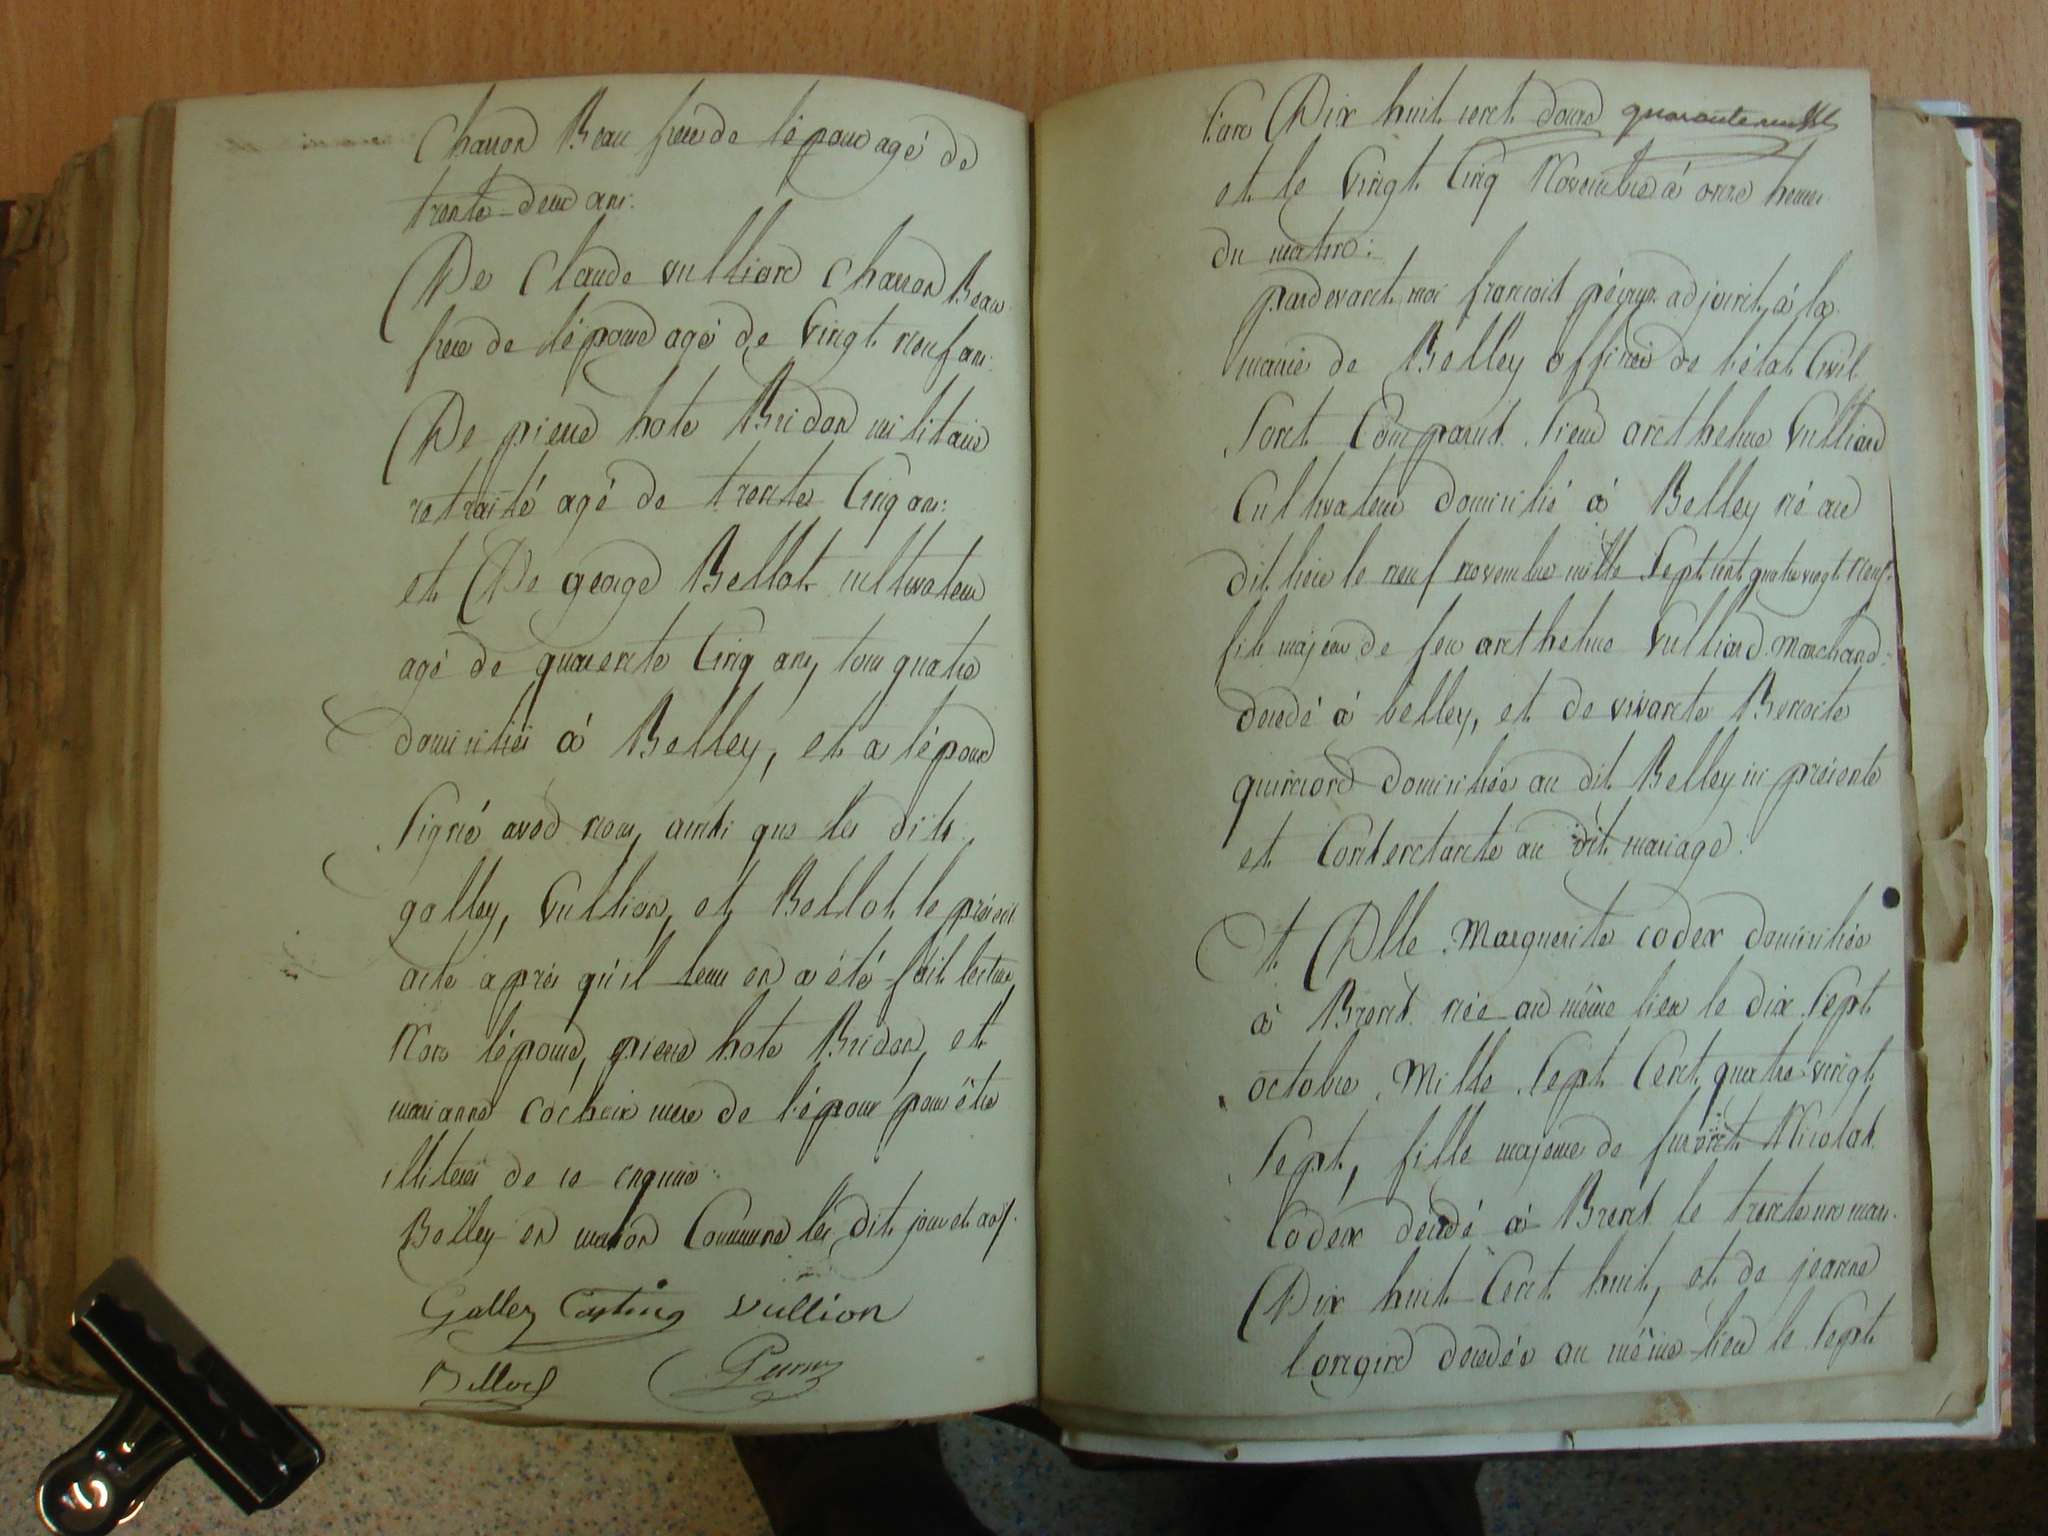 charron Beau frere de l'époux agé de
trente deux ans.
De Claude vullion charron Beau
frere de l'épouse agé de vingt neuf ans.
De pierre hote Bridon militaire
retraité agé de trente Cinq ans:
et De george Bellot cultivateur
agé de quarente Cinq ans, tous quatre
domiciliés à Belley, et a l'époux
Signé avec nous, ainsi que les dits
galley, Vullion, et Bellot le présent
acte après qu'il leur en a été fait lecture
Non l'épouse, pierre hote Bridon, et
marianne cochoix mere de l'époux pour être
illiterés de ce enquis:
Belley en maison Commune les dit jour et an.
Galley vullion
Bellot
l'an Dix huit cent douze quarante neuf
et le vingt Cinq Novembre à onze heures
du matin:
pardevant moi françois adjoint à la
mairie de Belley officier de l'état Civil
Sont Comparus Sieur anthelme Vulliard
Cultivateur domicilié à Belley né au
dit lieu le neuf novembre mille Sept cent quatre vingt neuf
fils majeur de feu anthelme Vulliard Marchand
decedé à belley, et de vivante Benoite
quinciord domiciliée au dit Belley ici présente
et Consentante au dit mariage:
Et Dlle Marguerite coder domiciliée
à Brens née au même lieu le dix Sept
octobre Mille Sept Cent quatre vingt
Sept, fille majeure de Nicolas
Coder décédé à Brens le trente un mars
Dix huit Cent huit, et de jeanne
Longin decedée au même lieu le Sept